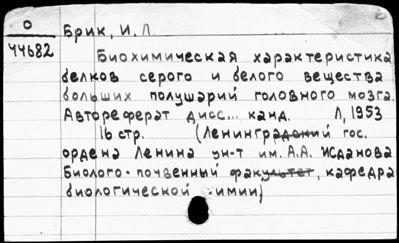 О Брик, И. Л.
44682
Биохимическая характеристика
белков серого и белого вещества
больших полушарий головного мозга.
Автореферат дисс... канд. Л, 1953
16 стр. (Ленинградский гос.
ордена Ленина ун-т им. А.А. Жданова
Биолого-почвенный факультет, кафедра
биологической химии)